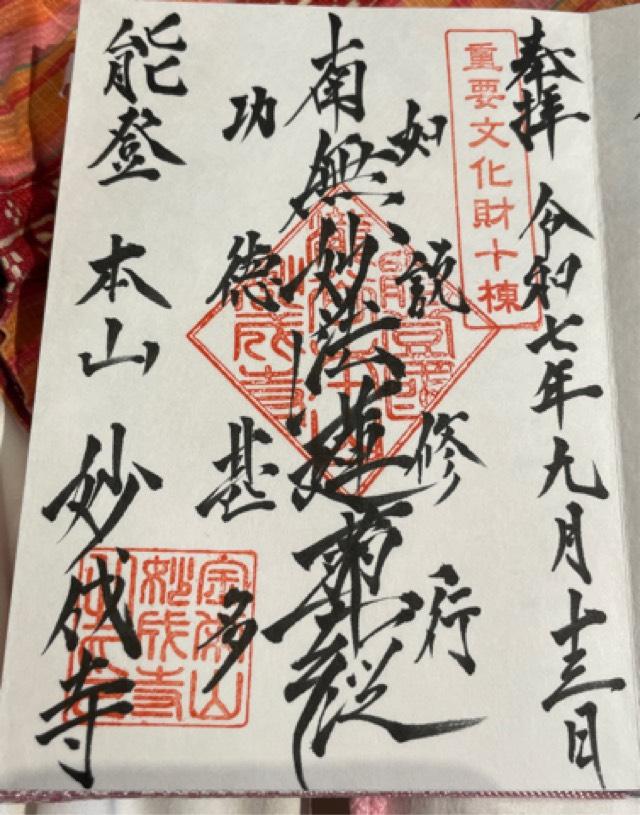 奉拝 令和七年九月十三日
重要文化財十棟
如説修行
南無妙法蓮華経
功徳甚多
能登 本山 妙成寺
金榮山
妙成寺